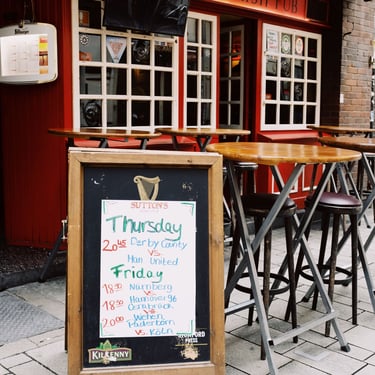 SH PUB
SUTTON'S
Thursday
20⁴⁵ Derby County
vs.
Man United
Friday
18³⁰ Nürnberg
vs.
Hannover 96
18³⁰ Osnabrück
vs.
Wehen
20⁰⁰ Paderborn
vs. Köln
KILKENNY
PRESS